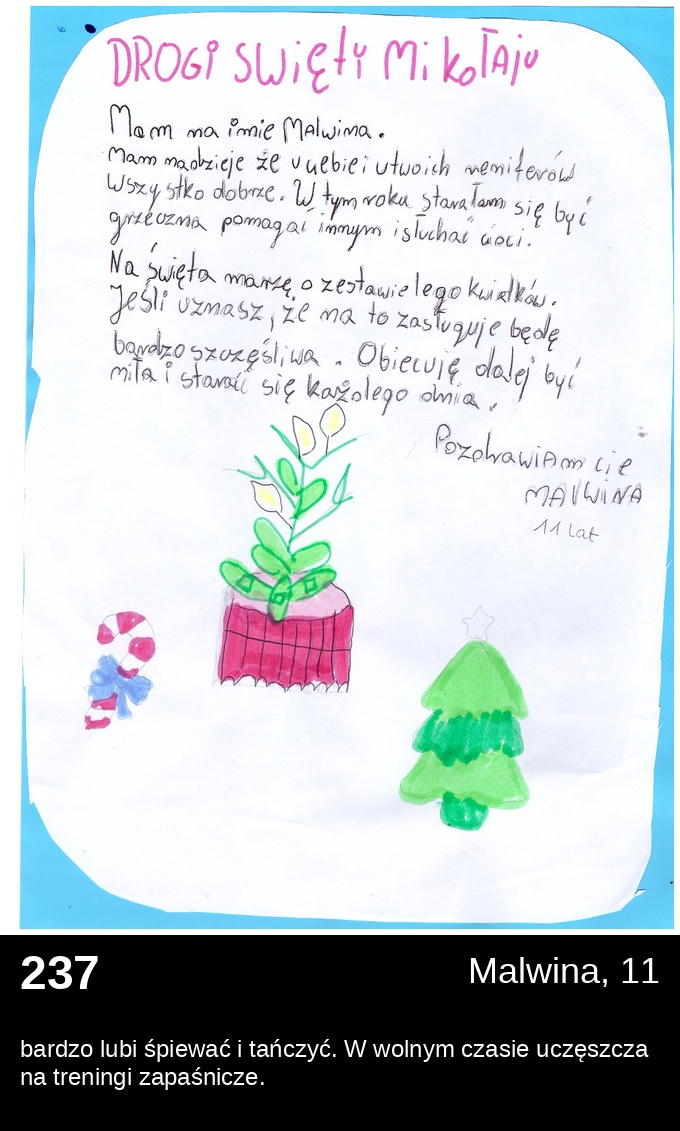 DROGi SWięTy MikoŁAju
Mam na imie MAlwina.
Mam nadzieje że u ciebie i u twoich reniferów
Wszystko dobrze. W tym roku starałam się być
grzeczna pomagać innym i słuchać cioci.
Na święta marzę o zestawie lego kwiatków.
Jeśli uznasz, że na to zasługuje będę
bardzo szczęśliwa. Obiecuję dalej być
miła i starać się każdego dnia.
PozdrawiAm cię
MAlWiNA
11 lat
237
Malwina, 11
bardzo lubi śpiewać i tańczyć. W wolnym czasie uczęszcza
na treningi zapaśnicze.